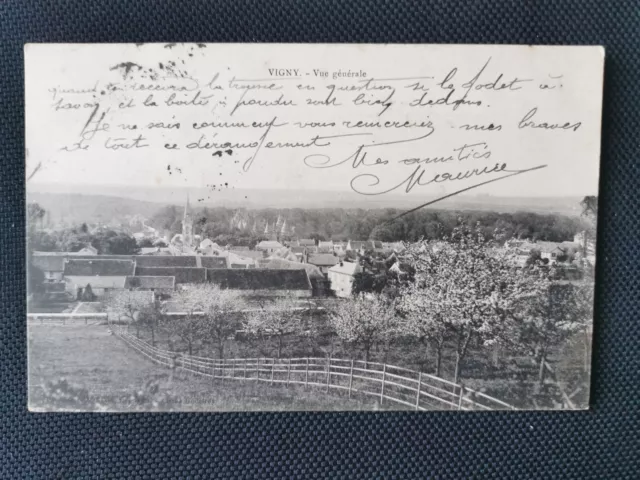 VIGNY. - Vue générale
quand recevra la trousse en question, si le godet à
savon et la boîte à poudre sont bien dedans.
Je ne sais comment vous remercier mes braves
de tout ce dérangement
Mes amitiés
Maurice